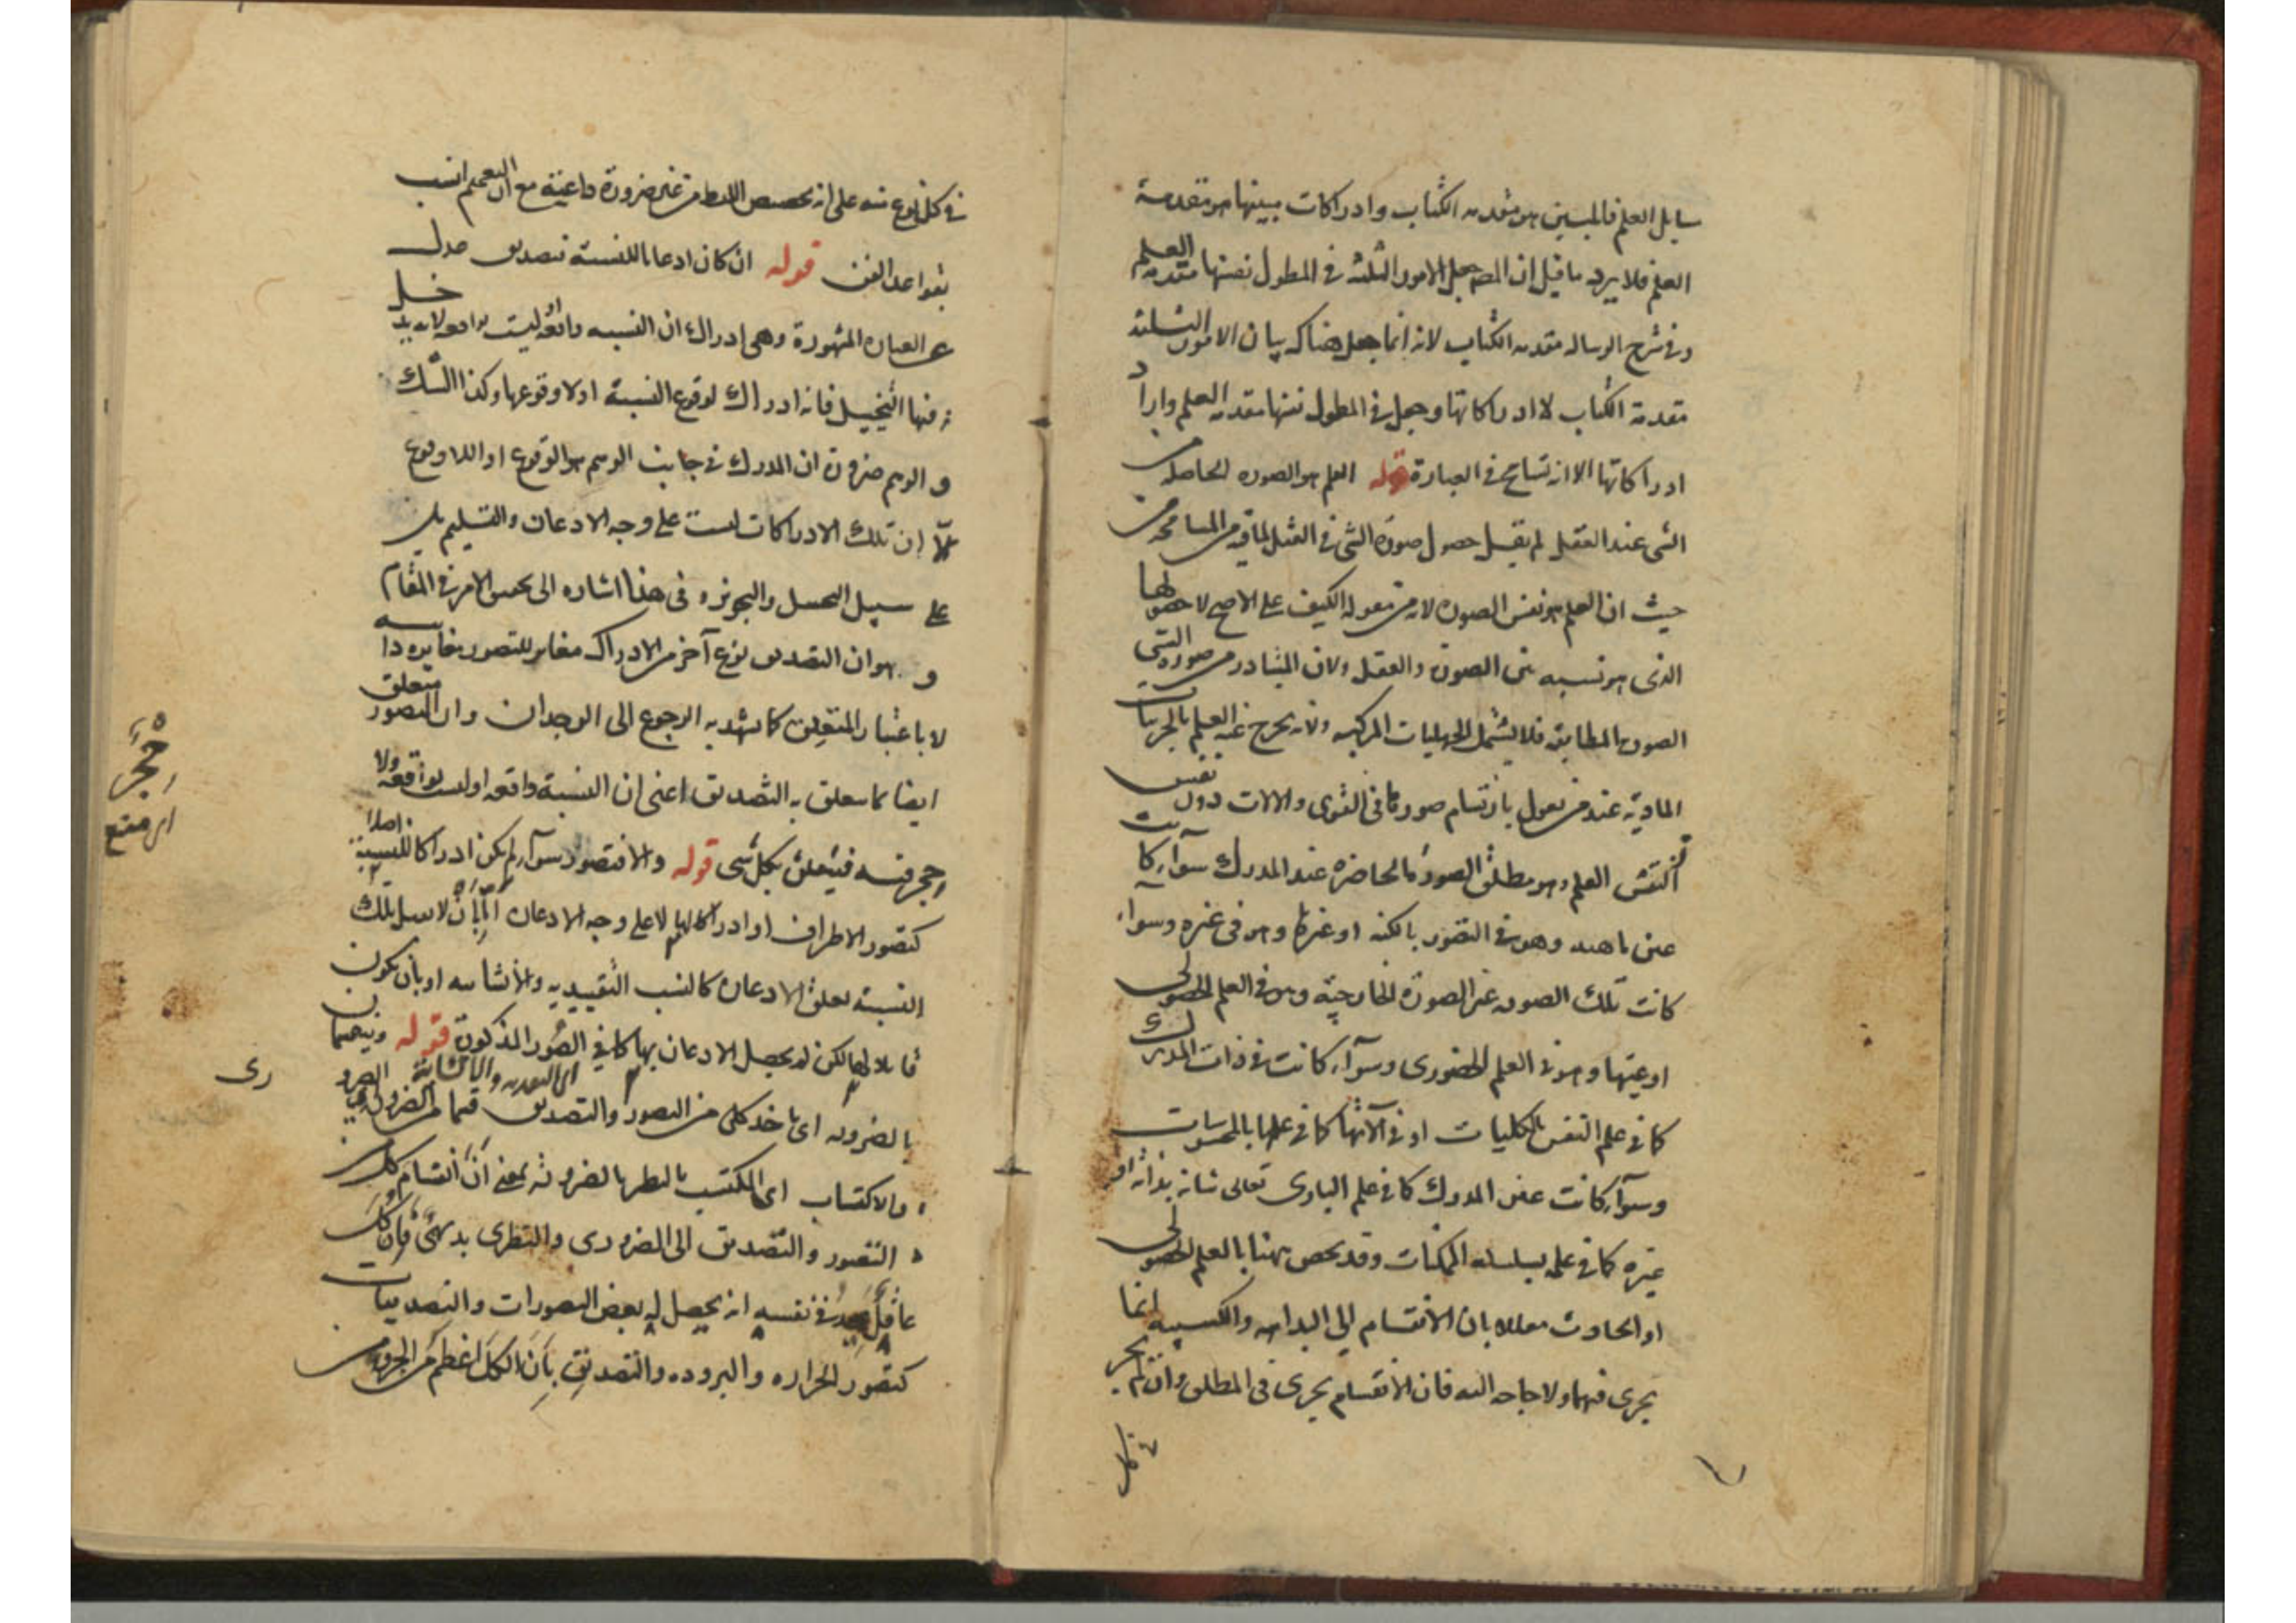 سايل العلم فالمبين هو مقدمه الكتاب وادراكات مبينها هو مقدمة
العلم فلا يرد ما قيل ان المص جعل الامور الثلثه في المطول نفسها مقدمه العلم
وفي شرح الرساله مقدمه الكتاب لانه انما جعل هناك بيان الامور الثلثه
مقدمة الكتاب لا ادراكاتها وجعل في المطول نفسها مقدمه العلم واراد
ادراكاتها الا انه تسامح في العبارة قوله العلم هو الصوره الحاصله من
الشي عند العقل لم يقل حصول صورة الشي في العقل لما فيه من المسامحه من
حيث ان العلم هو نفس الصوره لانه من مقوله الكيف على الاصح لا حصولها
الذي هو نسبه بين الصورة والعقل ولان المتبادر من صورة الشي
الصورة المطابقه فلا يشمل الجهليات المركبه ولانه يخرج عنه العلم بالجزئيات
الماديه عند من يقول بارتسام صورها في القوى والالات دون نفس
النفس العلم وهو مطلق الصورة الحاضره عند المدرك سوآء كانت
عين ماهيته وهو في التصور بالكنه او غيرها وهو في غيره وسوآء
كانت تلك الصوره غير الصورة الخارجيه وهو في العلم الحصولى
او عينها وهو في العلم الحضورى وسوآء كانت في ذات المدرك
كما في علم النفس بالكليات او في آلاتها كما في علمها بالمحسوسات
وسوآء كانت عين المدرك كما في علم البارى تعالى شانه بذاته او
غيره كما في علمه بسلسله الممكنات وقد يخص ههنا بالعلم الحصولى
او الحادث معللا بان الانقسام الى البداهه والكسبيه انما
يجرى فيهما ولا حاجه اليه فان الانقسام يجرى في المطلق وان لم يجر
في كل
في كل نوع منه على انه تخصيص اللفظ من غير ضرورة داعية مع ان التعميم انسب
بقواعد الفن قوله ان كان اذعانا للنسبه فتصديق عدل
عن العباره المشهورة وهى ادراك ان النسبه واقعه او ليست بواقعه لانه يدخل
فيها التخييل فانه ادراك لوقوع النسبة او لا وقوعها وكذا الشك
و الوهم ضرورة ان المدرك في جانب الوهم هو الوقوع او اللا وقوع
الا ان تلك الادراكات ليست على وجه الاذعان والتسليم بل
على سبيل التخييل والتجويز و فى هذا اشاره الى تحقيق الامر في المقام
و هو ان التصديق نوع آخر من الادراك مغاير للتصور مغايره ذاتيه
لا باعتبار المتعلق كما يشهد به الرجوع الى الوجدان وان التصور متعلق
ايضا بما يتعلق به التصديق اعنى ان النسبة واقعه او ليست بواقعه ولا
حجر فيه فيتعلق بكل شى قوله والا فتصور سوآء لم يكن ادراكا للنسبة اصلا
كتصور الاطراف او ادراكا لها لا على وجه الاذعان اما بان لا يقبل تلك
النسبة تعلق الاذعان كالنسب التقييديه والانشائيه او بان يكون
قابلا لها لكن لم يحصل الاذعان بها كما في الصور المذكورة قوله ويقتسمان
بالضروره اى ياخذ كل من التصور والتصديق قسما من الضرورى
والاكتساب اى المكتسب بالنظر بالضرورة بمعنى أن انقسام كل من
التصور والتصديق الى الضرورى والنظرى بديهى فان كل
عاقل يجد في نفسه انه يحصل له بعض التصورات والتصديقات
كتصور الحراره والبروده والتصديق بان الكل اعظم من الجزء من
حجر
اى منع
رى